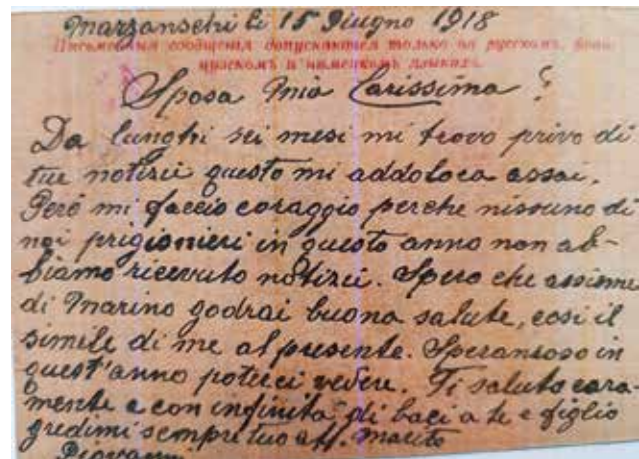 Marzanschi li 15 Giugno 1918
Письменныя сообщенія допускаются только на русскомъ, фран-
цузскомъ и нѣмецкомъ языкахъ.
Sposa Mia Carissima ?
Da lunghi sei mesi mi trovo privo di
tue notizii questo mi addoloca assai.
Però mi faccio coraggio perche nissuno di
noi prigionieri in questo anno non ab-
biamo ricevuto notizii. Spero che assieme
di Marino godrai buona salute, cosi il
simile di me al presente. Speransoso in
quest'anno poterci vedere. Ti saluto cara
mente e con infinita di baci a te e figlio
credimi sempre tuo aff. marito
Giovanni